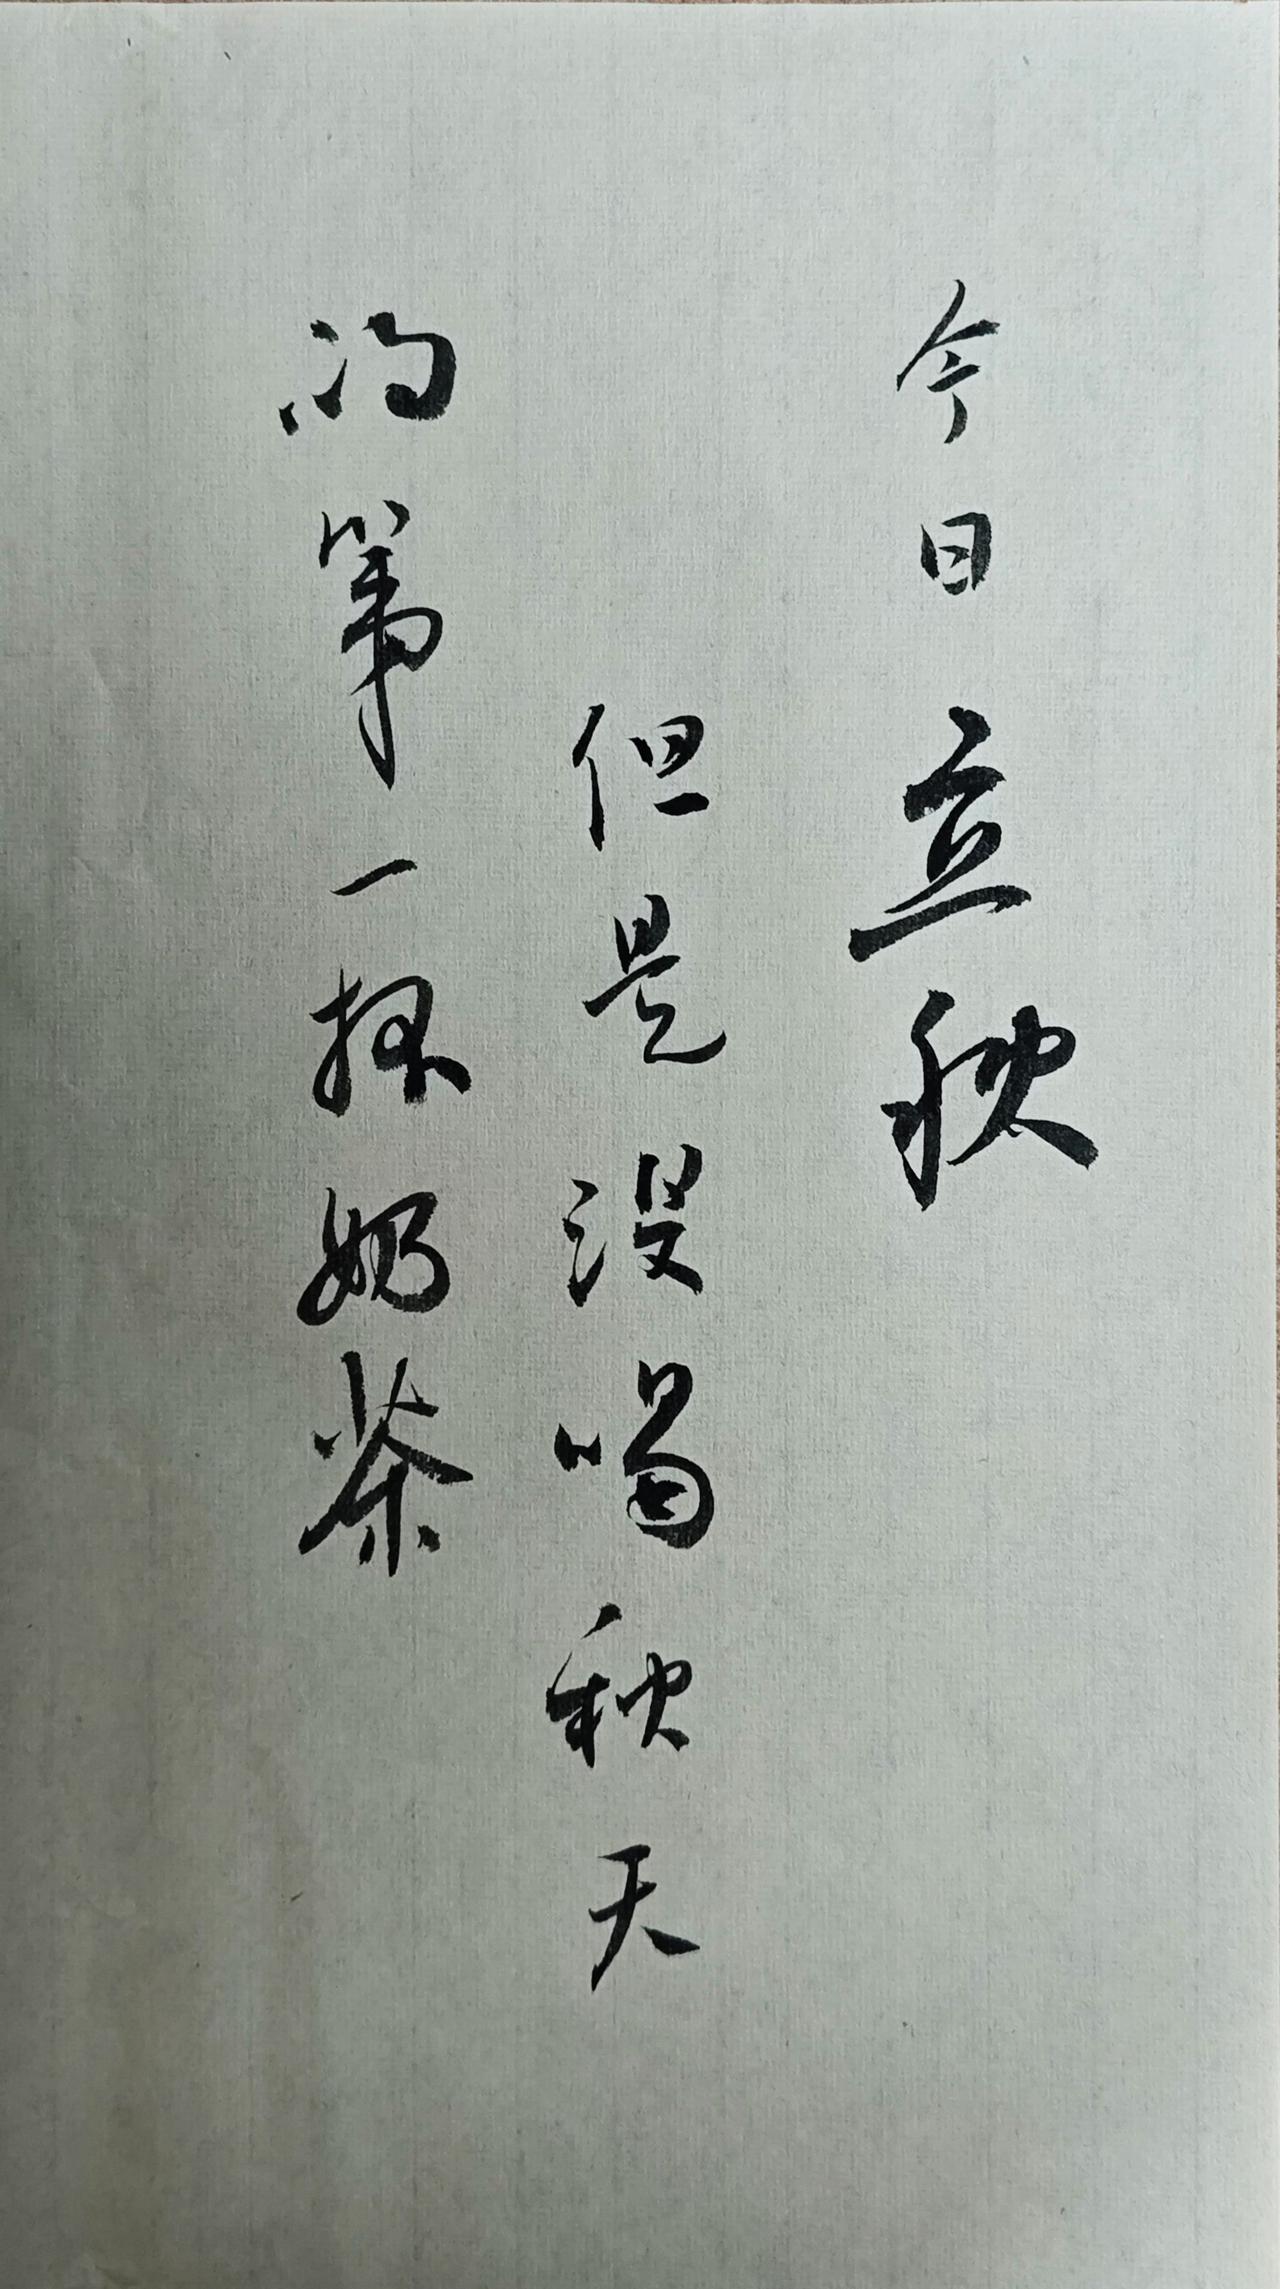 今日立秋
但是没喝秋天
的第一杯奶茶